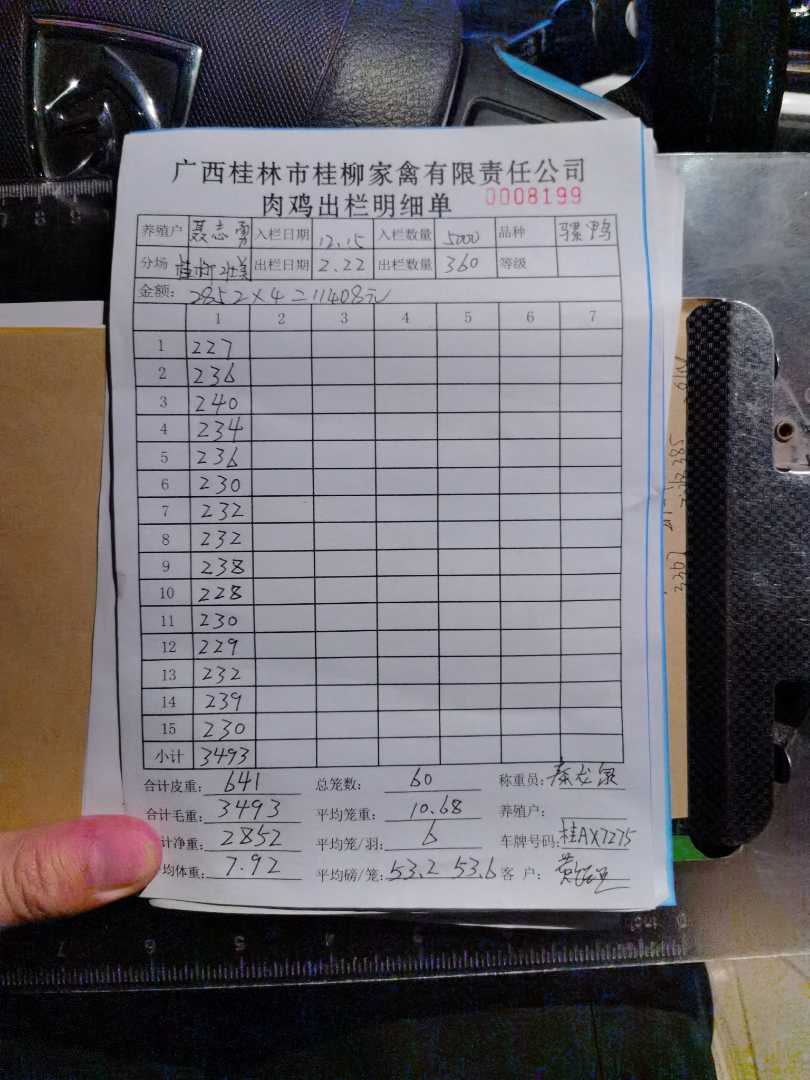 广西桂林市桂柳家禽有限责任公司
肉鸡出栏明细单 0008199
养殖户 聂志勇 入栏日期 12.15 入栏数量 5000 品种 骡鸭
分场 出栏日期 2.22 出栏数量 360 等级
金额: 2852×4=11408元
1 2 3 4 5 6 7
1 227
2 236
3 240
4 234
5 236
6 230
7 232
8 232
9 238
10 228
11 230
12 229
13 232
14 239
15 230
小计 3493
合计皮重: 641 总笼数: 60 称重员:
合计毛重: 3493 平均笼重: 10.68 养殖户:
计净重: 2852 平均笼/羽: 6 车牌号码: 桂AX7275
均体重: 7.92 平均磅/笼: 53.2 53.6 客户: